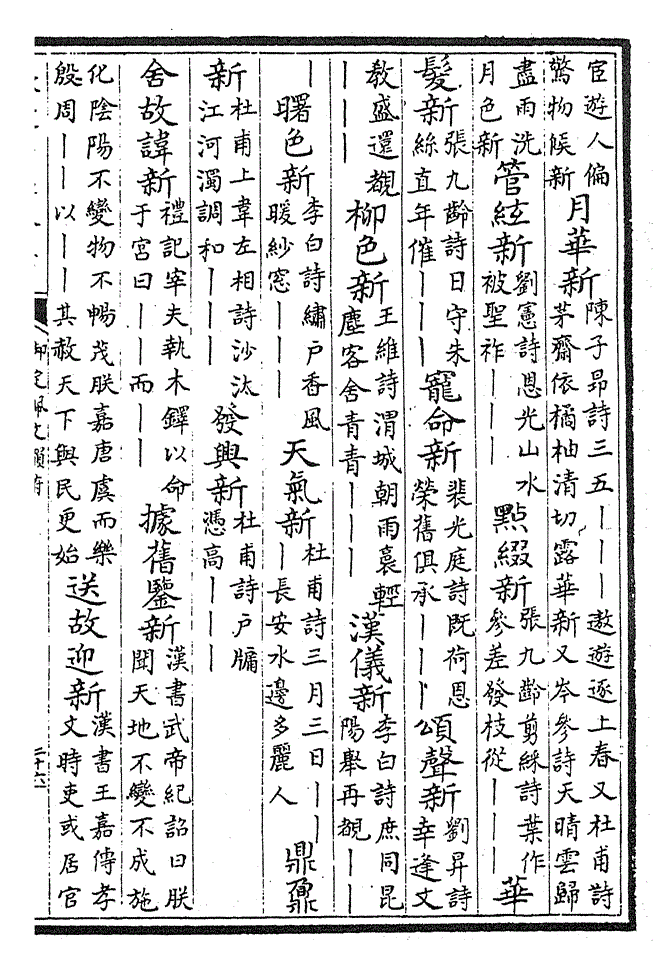 宦遊人偏驚物候新 月華新 陳子昂詩三五｜｜｜遨遊逐上春又杜甫詩茅齋依橘柚清切露華新又岑參詩天晴雲歸
盡雨洗月色新 管絃新 劉憲詩恩光山水被聖祚｜｜｜ 點綴新 張九齡剪綵詩葉作參差發枝從｜｜｜ 華
髮新 張九齡詩日守朱絲直年催｜｜｜ 寵命新 裴光庭詩既荷恩榮舊俱承｜｜｜ 頌聲新 劉昇詩幸逢文
教盛還覩｜｜｜ 柳色新 王維詩渭城朝雨裛輕塵客舍青青｜｜｜ 漢儀新 李白詩庶同昆陽舉再覩｜｜
｜ 曙色新 李白詩繡戶香風暖紗窓｜｜｜ 天氣新 杜甫詩三月三日｜｜｜長安水邊多麗人 鼎鼐
新 杜甫上韋左相詩沙汰江河濁調和｜｜｜ 發興新 杜甫詩戶牖憑高｜｜｜
舍故諱新 禮記宰夫執木鐸以命于宮曰｜｜而｜｜ 據舊鑒新 漢書武帝紀詔曰朕聞天地不變不成施
化陰陽不變物不暢茂朕嘉唐虞而樂殷周｜｜以｜｜其赦天下與民更始 送故迎新 漢書王嘉傳孝文時吏或居官
御定佩文韻府
二十六